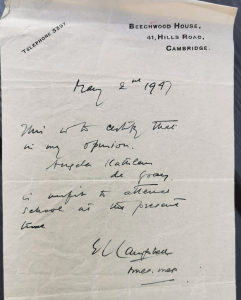 BEECHWOOD HOUSE,
41, HILLS ROAD,
CAMBRIDGE.
TELEPHONE
May 2nd 1947
This is to certify that
in my opinion,
Angela Kathleen
de Gray
is unfit to attend
school at the present
time
E L Campbell